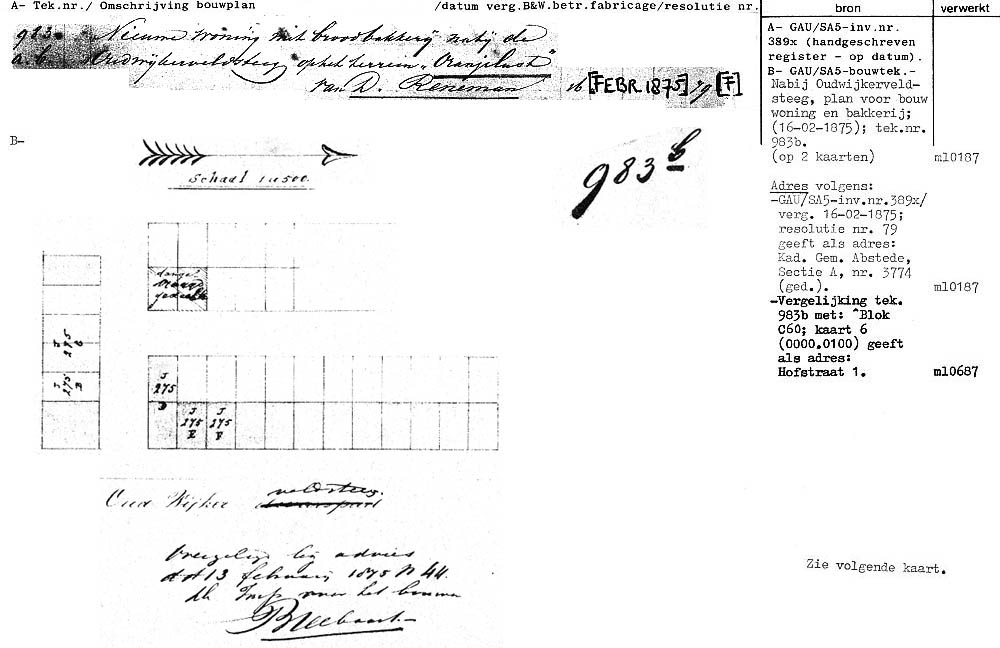 A- Tek.nr./ Omschrijving bouwplan /datum verg.B&W.betr.fabricage/resolutie nr.
983a Nieuwe woning met broodbakkerij nabij de
a b. Oudwijkerveldsteeg op het terrein "Oranjelust"
van D. Reneman 16 [FEBR 1875] 79 [F]
B-
Schaal 1 à 500.
983 b
J 275 C
J 275 B
J 275 D
J 275 E
J 275 F
Oud Wijker veldsteeg
advies
dd 13 februarij 1875 N 44.
het bouwen
bron verwerkt
A- GAU/SA5-inv.nr.
389x (handgeschreven
register - op datum).
B- GAU/SA5-bouwtek.-
Nabij Oudwijkerveld-
steeg, plan voor bouw
woning en bakkerij;
(16-02-1875); tek.nr.
983b.
(op 2 kaarten) ml0187
Adres volgens:
-GAU/SA5-inv.nr.389x/
verg. 16-02-1875;
resolutie nr. 79
geeft als adres:
Kad. Gem. Abstede,
Sectie A, nr. 3774
(ged.). ml0187
-Vergelijking tek.
983b met: ^Blok
C60; kaart 6
(0000.0100) geeft
als adres:
Hofstraat 1. ml0687
Zie volgende kaart.